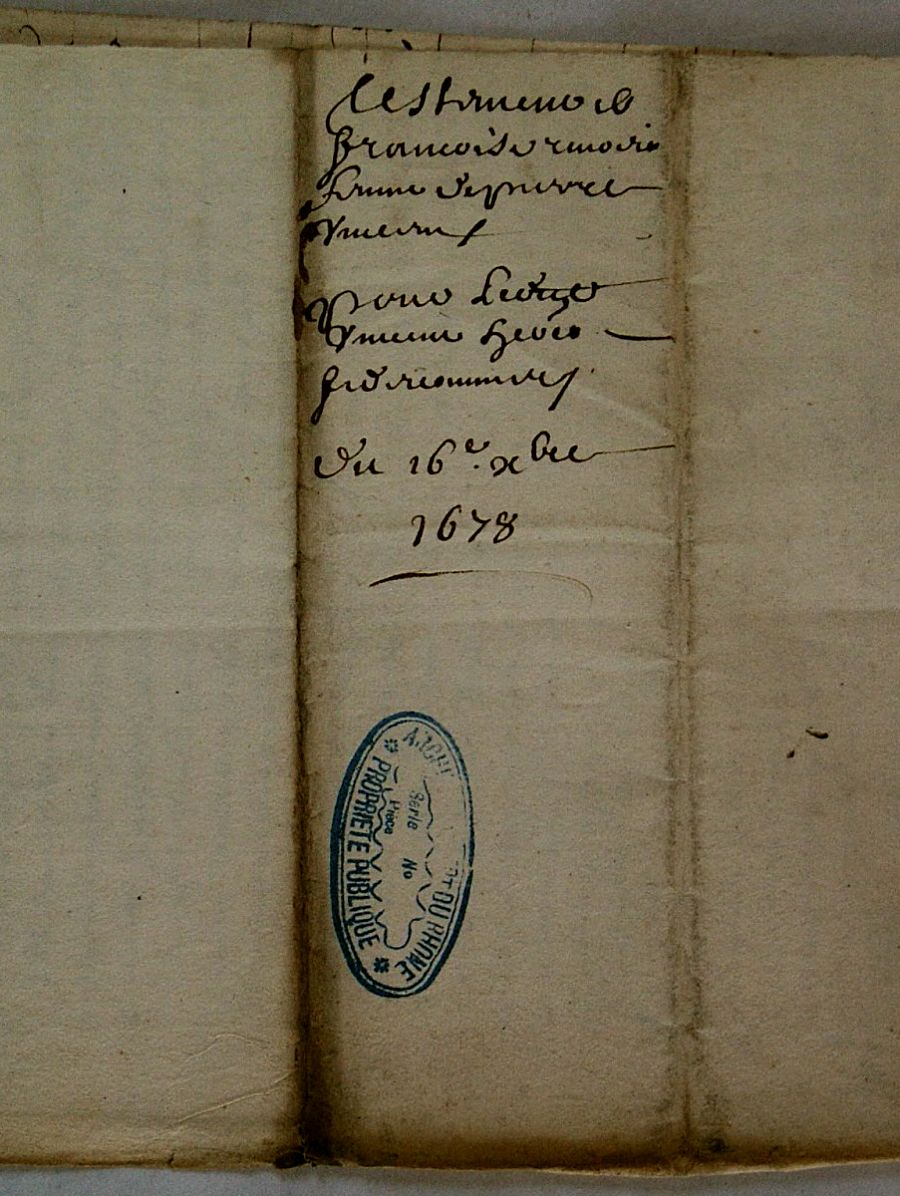 Testament de
françoise
femme de pierre
Vincent
pour
Vincent
fideicommis
du 16e. xbre
1678
ARCH DU RHONE
Serie No
Piece
PROPRIETE PUBLIQUE